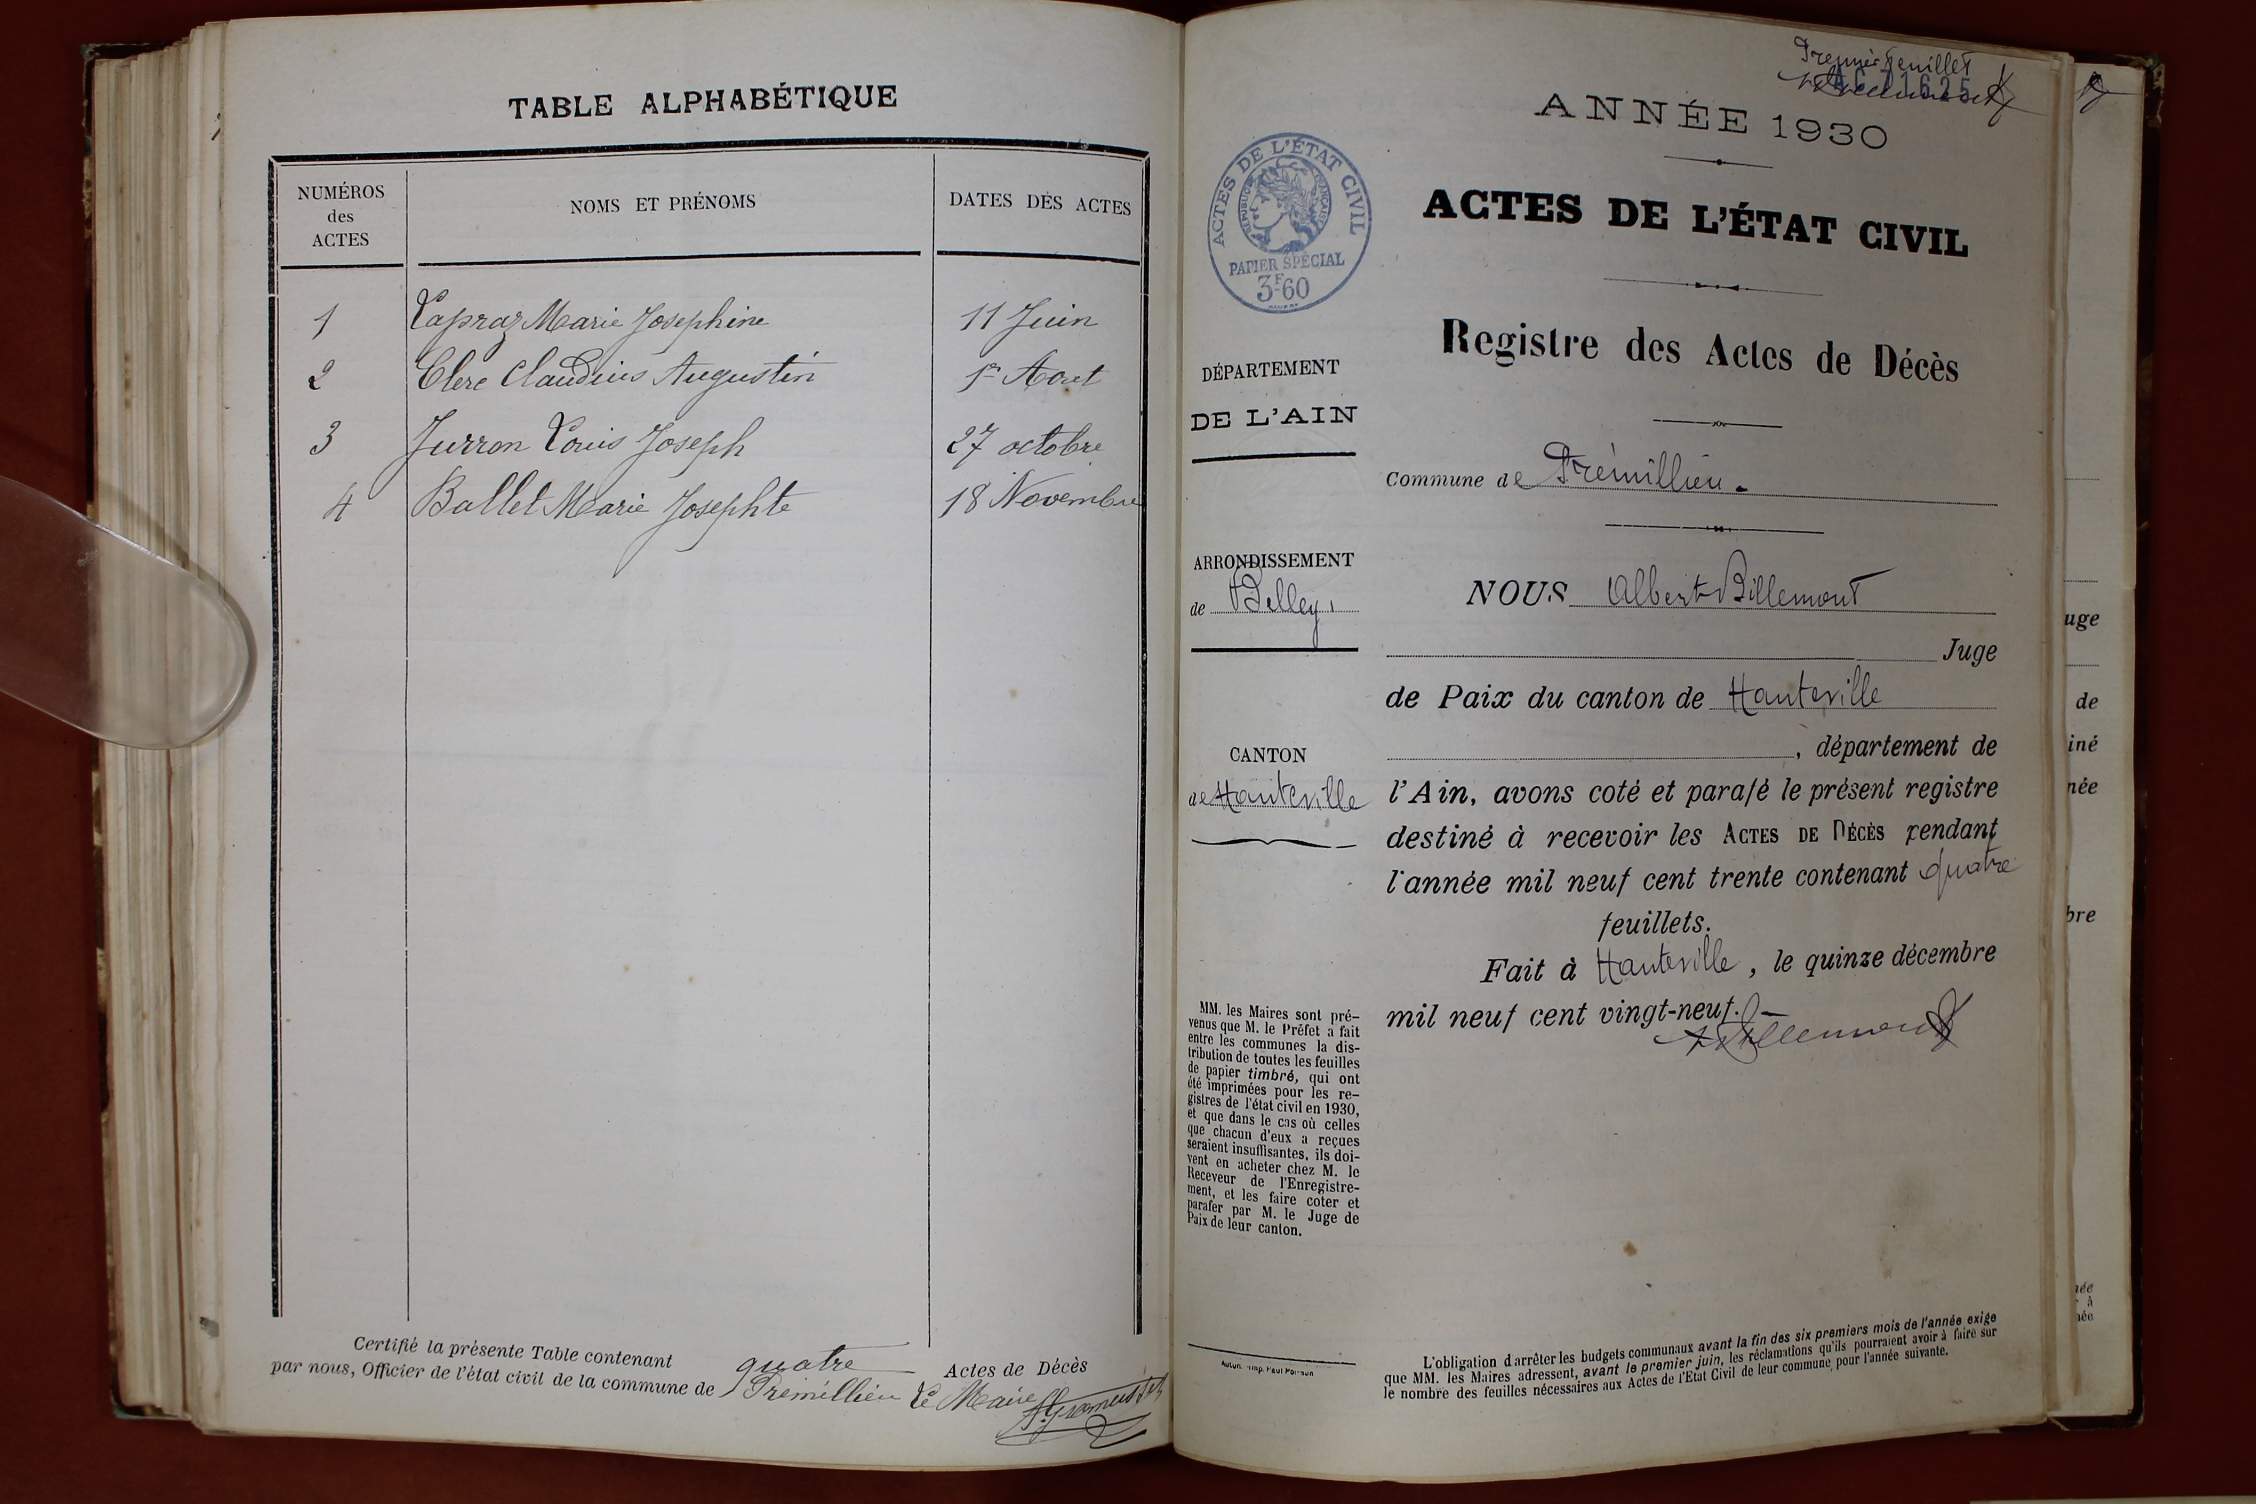 TABLE ALPHABÉTIQUE
NUMÉROS
des
ACTES
NOMS ET PRÉNOMS
DATES DES ACTES
1 Lapraz Marie Josephine 11 Juin
2 Clerc Claudius Augustin 1er Aout
3 Jurron Louis Joseph 27 octobre
4 Ballet Marie Josephte 18 Novembre
Certifié la présente Table contenant quatre Actes de Décès
par nous, Officier de l'état civil de la commune de Prémillieu Le Maire
Premier feuillet
71625
ANNÉE 1930
ACTES DE L'ÉTAT CIVIL
RÉPUBLIQUE FRANÇAISE
PAPIER SPÉCIAL
3F60
ACTES DE L'ÉTAT CIVIL
Registre des Actes de Décès
DÉPARTEMENT
DE L'AIN
Commune de Prémillieu.
ARRONDISSEMENT
de Belley,
NOUS Albert Billemont
Juge
de Paix du canton de Hauteville
, département de
CANTON
de Hauteville
l'Ain, avons coté et parafé le présent registre
destiné à recevoir les ACTES DE DÉCÈS pendant
l'année mil neuf cent trente contenant quatre
feuillets.
Fait à Hauteville, le quinze décembre
mil neuf cent vingt-neuf.
MM. les Maires sont pré-
venus que M. le Préfet a fait
entre les communes la dis-
tribution de toutes les feuilles
de papier timbré, qui ont
été imprimées pour les re-
gistres de l'état civil en 1930,
et que dans le cas où celles
que chacun d'eux a reçues
seraient insuffisantes, ils doi-
vent en acheter chez M. le
Receveur de l'Enregistre-
ment, et les faire coter et
parafer par M. le Juge de
Paix de leur canton.
Imp. Paul
L'obligation d'arrêter les budgets communaux avant la fin des six premiers mois de l'année exige
que MM. les Maires adressent, avant le premier juin, les réclamations qu'ils pourraient avoir à faire sur
le nombre des feuilles nécessaires aux Actes de l'Etat Civil de leur commune pour l'année suivante.
uge
de
iné
née
bre
née
à
née